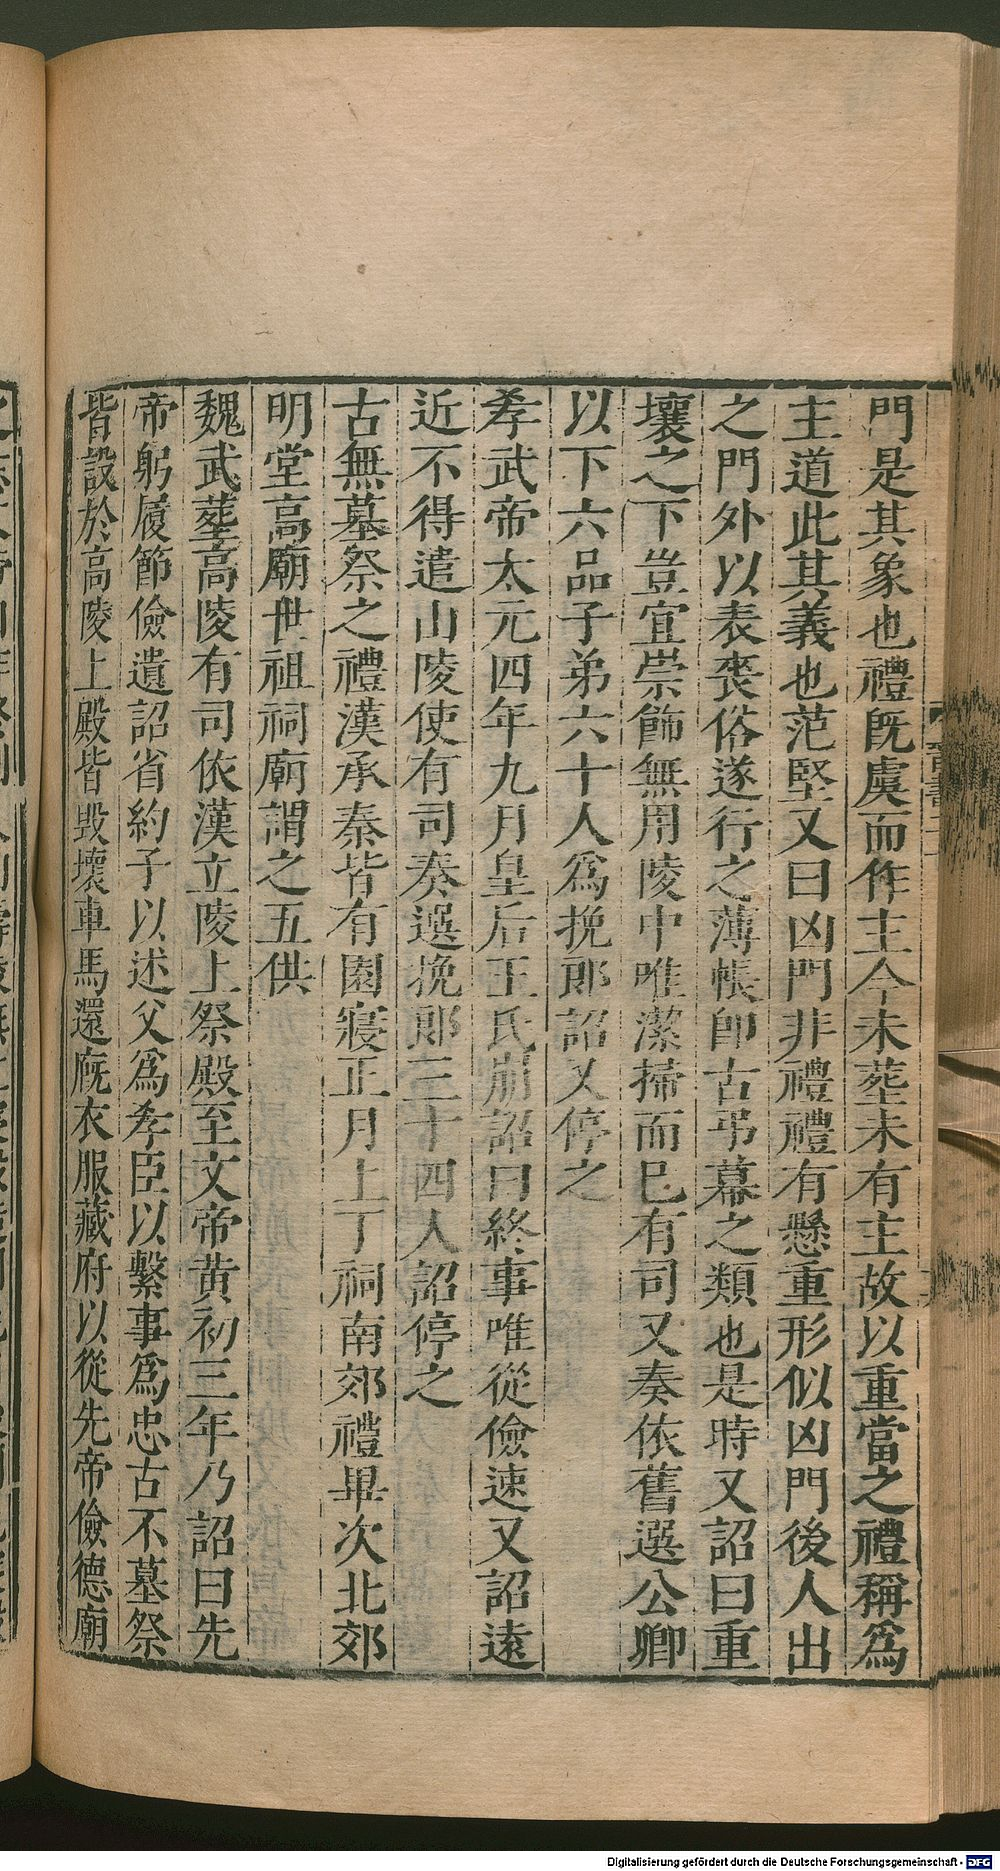 門是其象也禮旣虞而作主今未葬未有主故以重當之禮稱爲
主道此其義也范堅又曰凶門非禮禮有懸重形似凶門後人出
之門外以表喪俗遂行之薄帳卽古弔幕之類也是時又詔曰重
壤之下豈宜崇飾無用陵中唯潔掃而巳有司又奏依舊選公卿
以下六品子弟六十人爲挽郎詔又停之
孝武帝太元四年九月皇后王氏崩詔曰終事唯從儉速又詔遠
近不得遣山陵使有司奏選挽郎二十四人詔停之
古無墓祭之禮漢承秦皆有園寢正月上丁祠南郊禮畢次北郊
明堂高廟世祖祠廟謂之五供
魏武葬高陵有司依漢立陵上祭殿至文帝黄初三年乃詔曰先
帝躬履節儉遺詔省約子以述父爲孝臣以繫事爲忠古不墓祭
皆設於高陵上殿皆毁壞車馬還廐衣服藏府以從先帝儉德廟
Digitalisierung gefördert durch die Deutsche Forschungsgemeinschaft - DFG